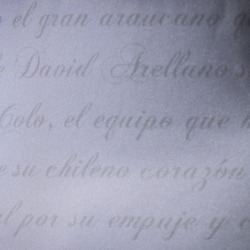 o el gran araucano q
e David Arellano s
Colo, el equipo que h
e su chileno corazón
al por su empuje y